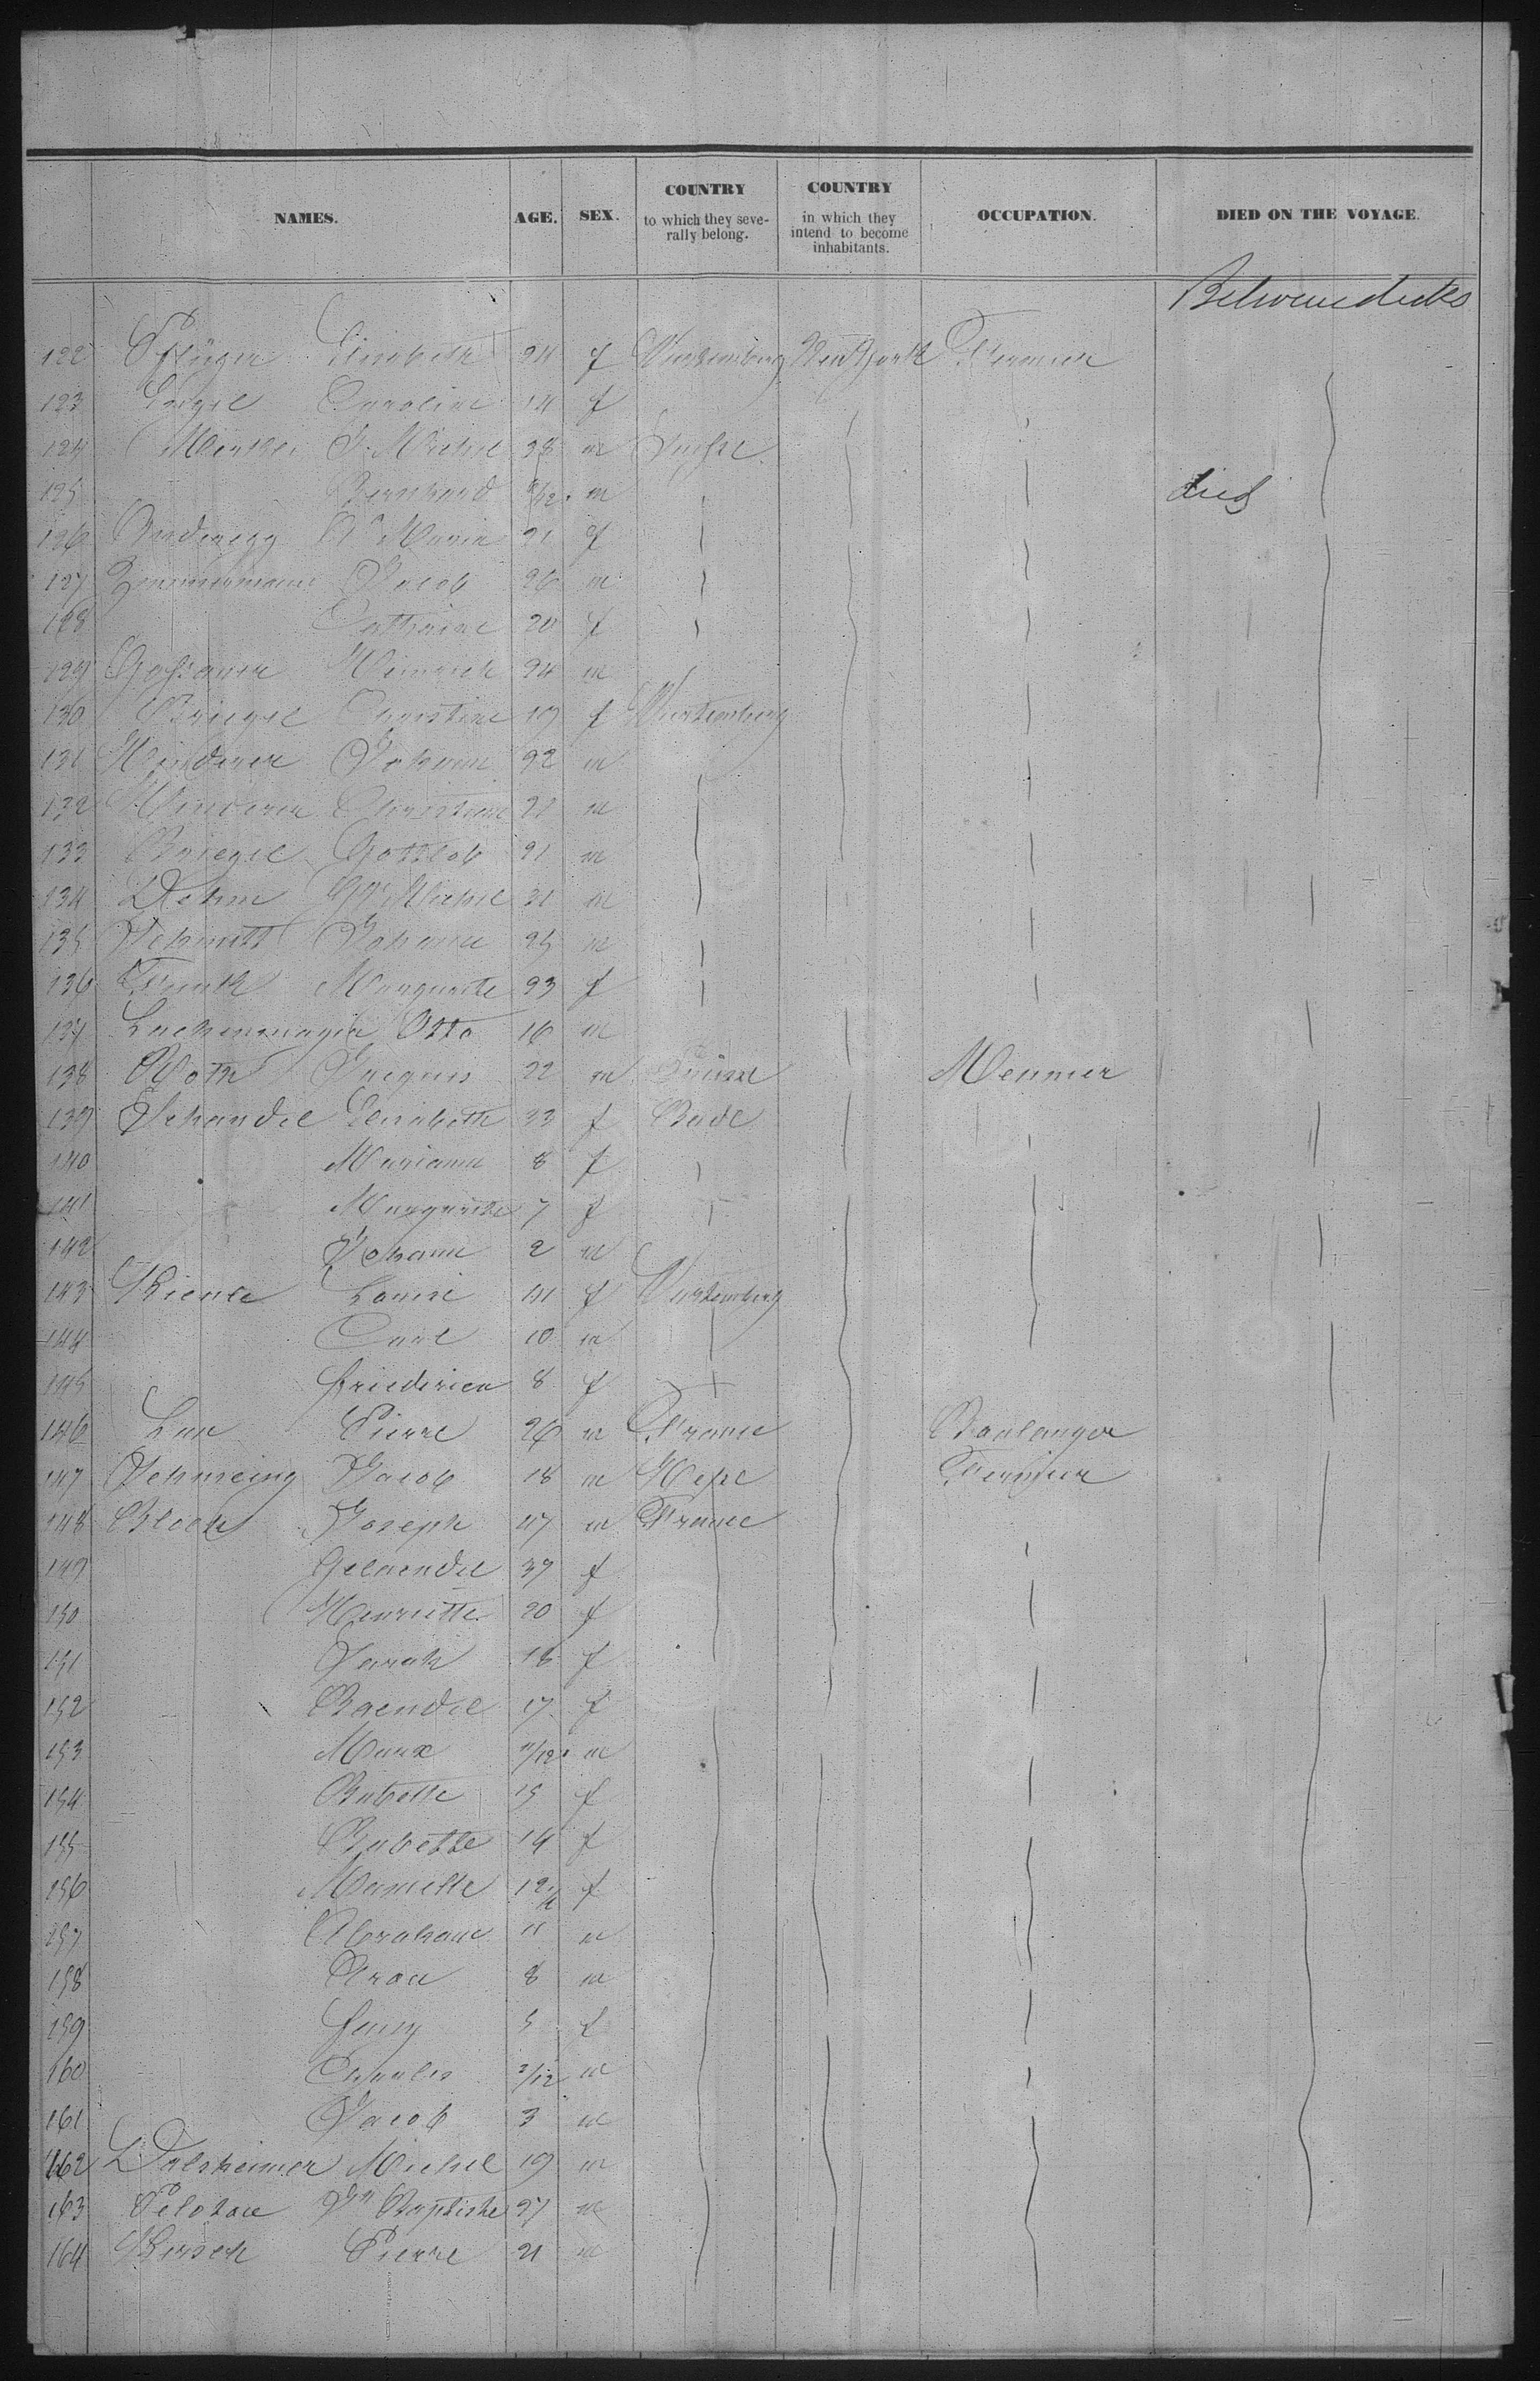 NAMES. AGE. SEX. COUNTRY to which they severally belong. COUNTRY in which they intend to become inhabitants. OCCUPATION. DIED ON THE VOYAGE.
Between decks
122 Pflüger Elisabeth 24 f Wurtemberg New York Fermier
123 Caroline 14 f
124 J. Michel 28 m
125 Bernhard m died
126 Anderegg Aª Maria 21 f
127 Zimmermann Jacob 26 m
128 Catharine 20 f
129 Heinrich 24 m
130 Briegel Christine 19 f Wurtemberg
131 Minderer Johann 22 m
132 Minderer Christian 21 m
133 Briegel Gottlob 21 m
134 Dehm Michel 31 m
135 Schmitt Johann 25 m
136 Frank Marguerite 23 f
137 Lachenmayer Otto 16 m
138 Roth Jacques 22 m Suisse Meunier
139 Schandel Elisabeth 33 f Bade
140 Mariann 8 f
141 Marguerite 7 f
142 Johann 2 m
143 Kienle Louise 41 f Wurtemberg
144 Carl 10 m
145 Friederica 8 f
146 Pierre 26 m France Boulanger
147 Schmeing Jacob 18 m Hesse Fermier
148 Bloch Joseph 47 m France
149 37 f
150 Henriette 20 f
151 Sarah 18 f
152 Baendel 17 f
153 Marx 11/12 m
154 Babette 15 f
155 Babette 14 f
156 Mamelle 12 f
157 Abraham 11 m
158 Aron 8 m
159 Fanny 5 f
160 Charles 3/12 m
161 Jacob 3 m
162 Dalsheimer Michel 19 m
163 Jn Baptiste 27 m
164 Kirsch Pierre 21 m